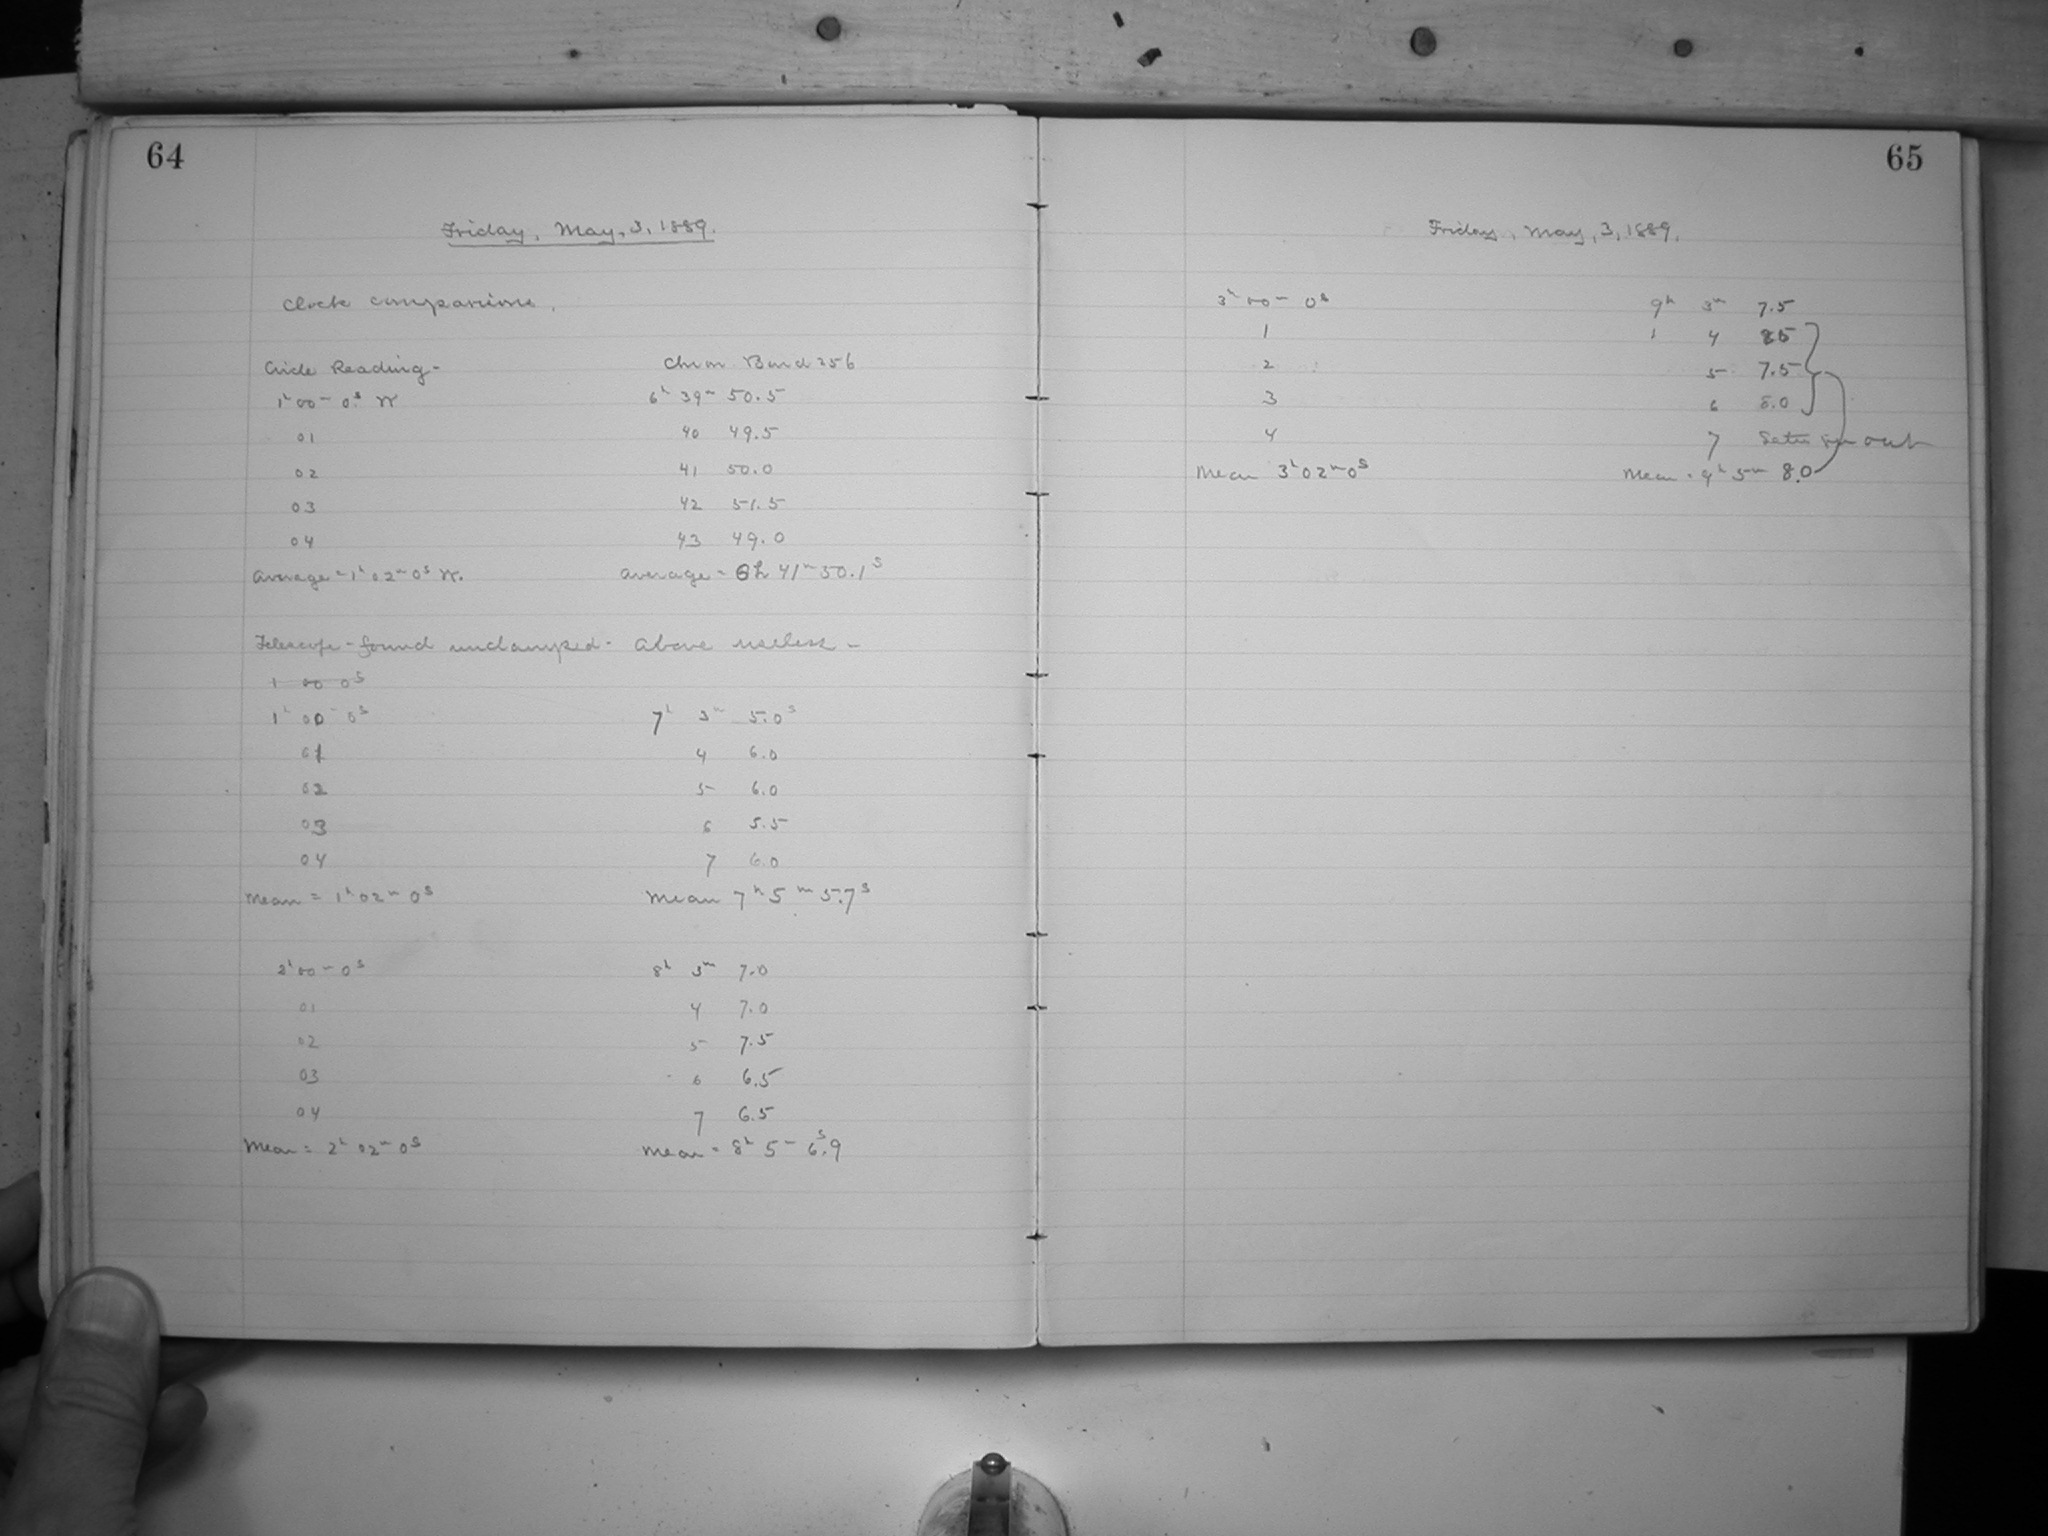 64
Friday, May, 3, 1889.
Clock comparisons.
Circle Reading- Chron. Bond 256
1h 00m 0s W 6h 39m 50.5
01 40 49.5
02 41 50.0
03 42 51.5
04 43 49.0
Average = 1h 02m 0s W. Average = 6h 41m 50.1s
Telescope - found unclamped - Above useless -
1 00 0s
1h 00m 0s 7h 3m 5.0s
01 4 6.0
02 5 6.0
03 6 5.5
04 7 6.0
Mean = 1h 02m 0s Mean 7h 5m 5.7s
2h 00m 0s 8h 3m 7.0
01 4 7.0
02 5 7.5
03 6 6.5
04 7 6.5
Mean = 2h 02m 0s Mean = 8h 5m 6s.9
65
Friday, May, 3, 1889.
3h 00m 0s 9h 3m 7.5
1 4 8.5
2 5 7.5
3 6 8.0
4 7 out
Mean 3h 02m 0s Mean = 9h 5m 8.0